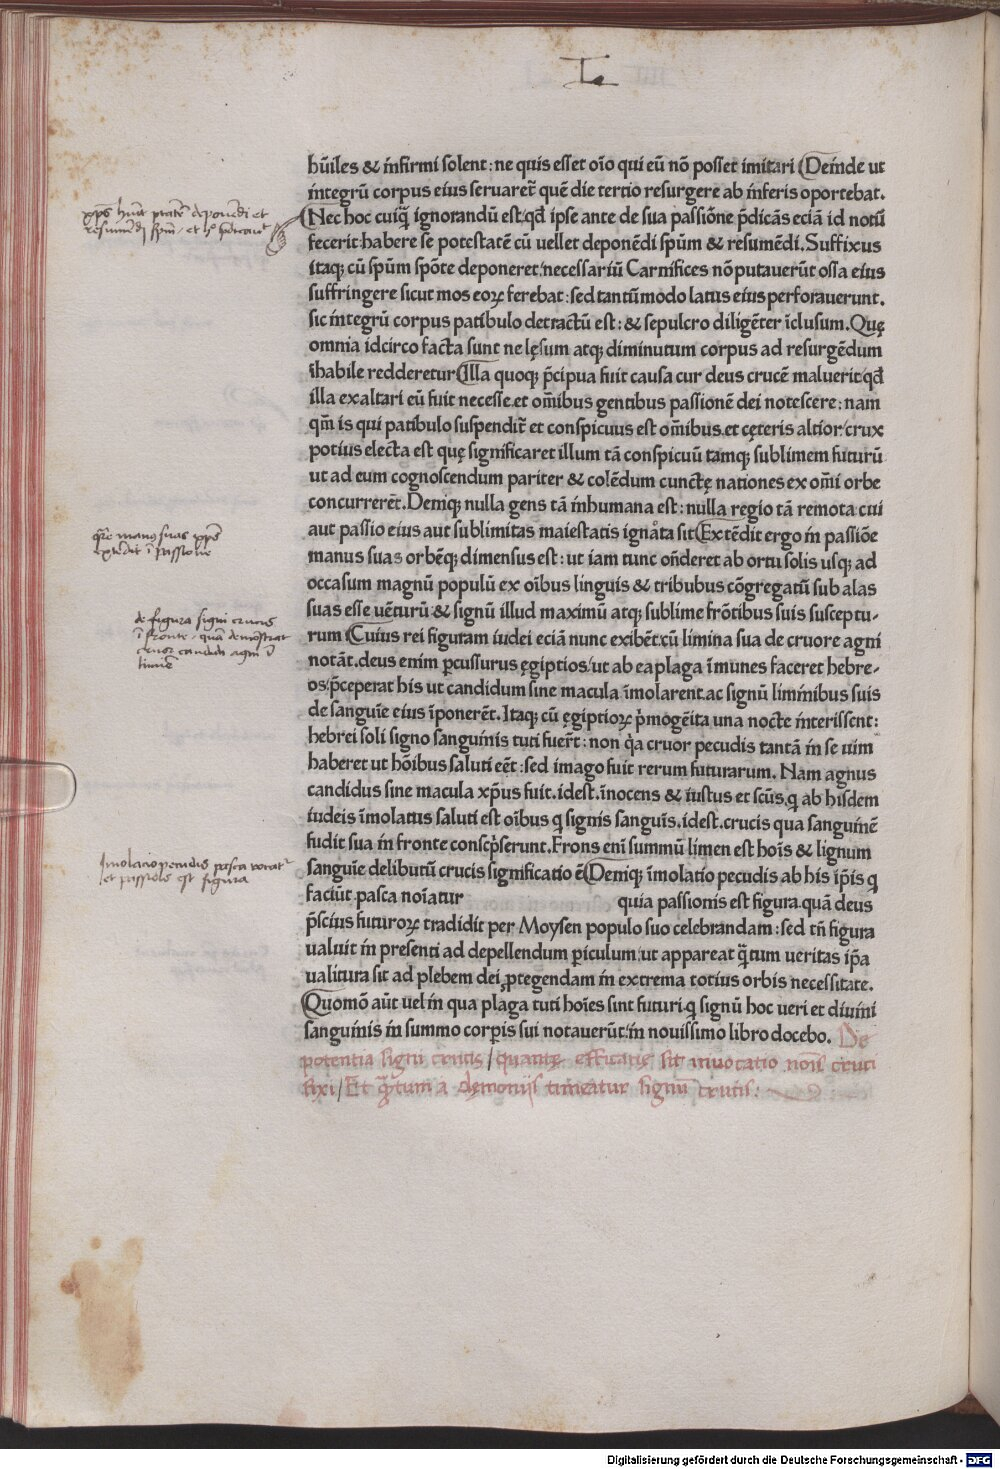 L
hūiles & īnfirmi solent: ne quis esset oīo qui eū nō posset imitari Deinde ut
integrū corpus eius seruaret̄ quē die tertio resurgere ab inferis oportebat.
Nec hoc cuiq̄ ignorandū est: qđ ipse ante de sua passiōne p̄dicās eciā id notū
fecerit: habere se potestatē cū uellet deponēdi spūm & resumēdi. Suffixus
itaq; cū spūm spōte deponeret: necessariū Carnifices nō putauerūt ossa eius
suffringere sicut mos eoꝝ ferebat: sed tantūmodo latus eius perforauerunt.
sic integrū corpus patibulo detractū est: & sepulcro diligēter īclusum. Quę
omnia idcirco facta sunt ne lęsum atq; diminutum corpus ad resurgēdum
īhabile redderetur Illa quoq; p̄cipua fuit causa cur deus crucē maluerit: qđ
illa exaltari eū fuit necesse. et om̄ibus gentibus passionē dei notescere: nam
qm̄ is qui patibulo suspendit̄ et conspicuus est om̄ibus. et cęteris altior: crux
potius electa est quę significaret illum tā conspicuū tamq; sublimem futurū
ut ad eum cognoscendum pariter & colēdum cunctę nationes ex om̄i orbe
concurrerēt. Deniq; nulla gens tā inhumana est: nulla regio tā remota: cui
aut passio eius aut sublimitas maiestatis ignāta sit Extēdit ergo in passiōe
manus suas orbēq; dimensus est: ut iam tunc on̄deret ab ortu solis usq; ad
occasum magnū populū ex oībus linguis & tribubus cōgregatū sub alas
suas esse uētūrū & signū illud maximū atq; sublime frōtibus suis susceptu-
rum Cuius rei figuram iudei eciā nunc exibēt. cū limina sua de cruore agni
notāt. deus enim p̄cussurus ęgiptios: ut ab ea plaga īmunes faceret hebre-
os: p̄ceperat his ut candidum sine macula īmolarent. ac signū liminibus suis
de sanguīe eius īponerēt. Itaq; cū ęgiptioꝝ p̄mogēita una nocte interissent:
hebrei soli signo sanguinis tuti fuer̄t: non q̄a cruor pecudis tantā in se uim
haberet ut hōibus saluti eēt: sed imago fuit rerum futurarum. Nam agnus
candidus sine macula xp̄us fuit. idest. īnocens & iustus et scūs. q̄ ab hisdem
iudeis īmolatus saluti est oībus q̄ signis sanguīs. idest. crucis qua sanguinē
fudit sua in fronte conscp̄serunt. Frons enī summū limen est hoīs & lignum
sanguīe delibutū crucis significatio ē Deniq; īmolatio pecudis ab his ip̄is q̄
faciūt pasca noīatur quia passionis est figura. quā deus
p̄scius futuroꝝ tradidit per Moysen populo suo celebrandam: sed tn̄ figura
ualuit in presenti ad depellendum piculum: ut appareat q̄tum ueritas ip̄a
ualitura sit ad plebem dei ꝓtegendam in extrema totius orbis necessitate.
Quomō aūt uel in qua plaga tuti hoīes sint futuri. q̄ signū hoc ueri et diuini
sanguinis in summo corpis sui notauerūt: in nouissimo libro docebo. De
potentia signi crucis / quantę efficatię sit inuocatio noīs cruci
fixi / Et q̄tum a dęmoniis timeatur signū crucis:
xp̄s huīt ptatē deponēdi et
resumēdi spm̄ / et h° p̄dicauit
Qr̄e manus suas xp̄s
extendit ī passione
de figura signi crucis
ī fronte / quā demōstrat
cruor candidi agni ī
limine
Imolatio pecudis pasca vocat̄
et passiōis est figura
Digitalisierung gefördert durch die Deutsche Forschungsgemeinschaft - DFG